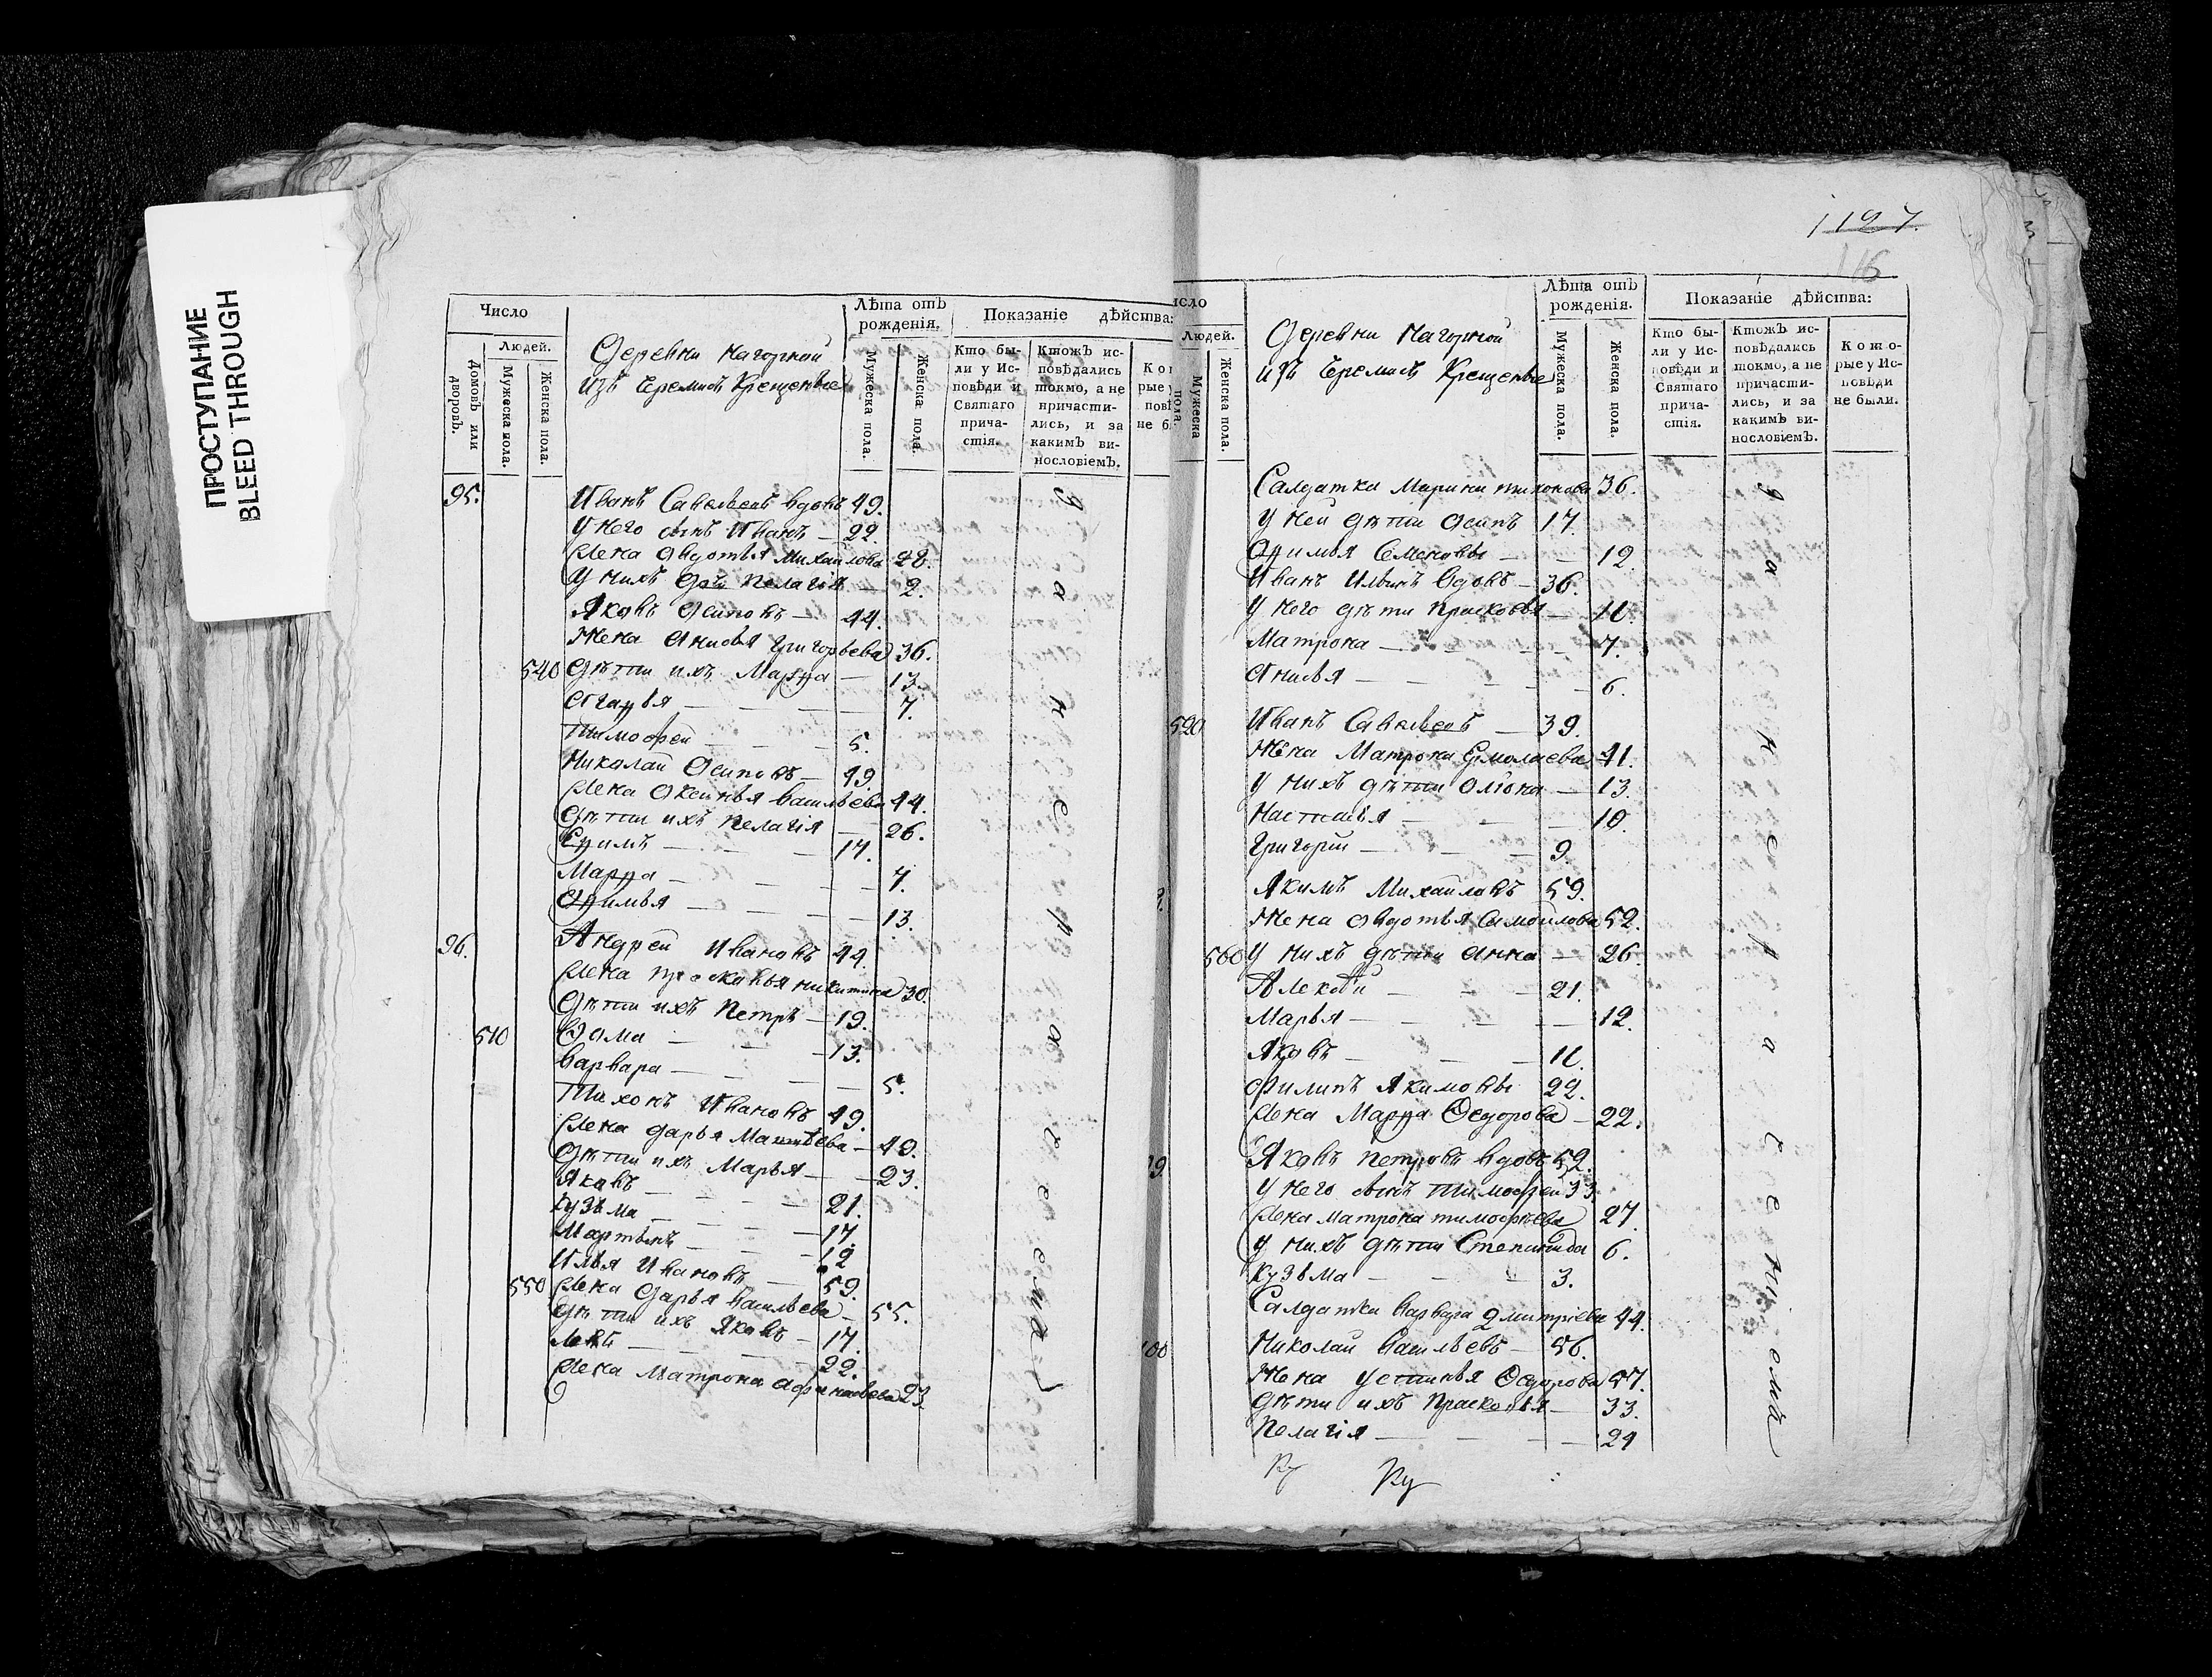 ПРОСТУПАНИЕ
BLEED THROUGH
Число
Людей.
Домовъ или дворовъ.
Мужеска пола.
Женска пола.
Деревни Нагорной
изъ Черемисъ Крещеные
Лѣта отъ
рожденія.
Мужеска пола.
Женска пола.
Показаніе дѣйства:
Кто бы-
ли у Ис-
повѣди и
Святаго
прича-
стія.
Ктожъ ис-
повѣдались
токмо, а не
причасти-
лись, и за
какимъ ви-
нословіемъ.
95. Иванъ Савельевъ вдовъ 49.
у него сынъ Иванъ — 22.
Жена Авдотья Михайлова 28.
у нихъ дочь Пелагія — 2.
Яковъ Осиповъ — 44.
Жена Анисья Григорьева 36.
540 Дѣти ихъ Марѳа — 13.
Агаѳья — 7.
Тимофей — 5.
Николай Осиповъ — 49.
Жена Аксинья Васильева 44.
Дѣти ихъ Пелагія — 26.
Ефимъ — 17.
Марѳа — 7.
Афимья — 13.
96. Андрей Ивановъ 44.
Жена Прасковья Никитина 30.
Дѣти ихъ Петръ — 19.
510 Ѳома — 13.
Варвара — 5.
Тихонъ Ивановъ 49.
Жена Дарья Матвѣева — 40.
Дѣти ихъ Марья — 23.
Яковъ — 21.
Кузьма — 17.
Мартынъ — 12
Илья Ивановъ — 59.
550 Жена Дарья Васильева — 55.
Дѣти ихъ Яковъ — 17.
— 22.
Жена Матрона Афанасьева 23.
1197.
116
Людей.
Мужеска пола.
Женска пола.
Деревни Нагорной
изъ Черемисъ Крещеные
Лѣта отъ
рожденія.
Мужеска пола.
Женска пола.
Показаніе дѣйства:
Кто бы-
ли у Ис-
повѣди и
Святаго
прича-
стія.
Ктожъ ис-
повѣдались
токмо, а не
причасти-
лись, и за
какимъ ви-
нословіемъ.
Кото-
рые у Ис-
повѣди
не были.
Салдатка Марина Тихонова 36.
у ней дѣти Осипъ 17.
Афимья Семеновы — 12.
Иванъ Ильинъ вдовъ — 36.
у него дѣти Прасковья — 11.
Матрона — 7.
Анисья — 6.
520 Иванъ Савельевъ — 39.
Жена Матрона Ермолаева 41.
у нихъ дѣти — 13.
Настасья — 10.
Григорій — 9.
Якимъ Михайловъ 59.
Жена Авдотья Самойлова 52.
560 у нихъ дѣти Анна — 26.
Алексѣй — 21.
Марья — 12.
Яковъ — 11.
Филипъ Якимовы 22.
Жена Марѳа Ѳедорова — 22.
Яковъ Петровъ вдовъ 52.
у него сынъ Тимофей 33
Жена Матрона Тимофеева 27.
у нихъ дѣти Степанида 6.
Кузьма — 3.
Салдатка Варвара Дмитріева 44.
100 Николай Васильевъ — 56.
Жена Устинья Ѳедорова 57.
Дѣти ихъ Прасковья — 33.
Пелагія — 24
Ку Ку